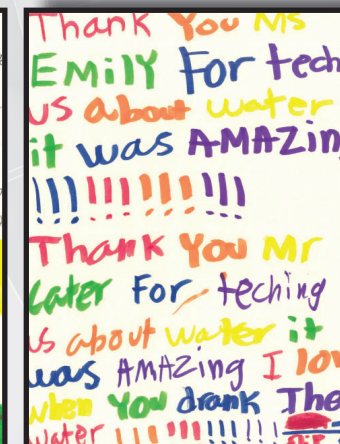 Thank You Ms
EMilY For tech
us about water
it was AMAZin
!!! !!! !!! !!!
Thank You Mr
Cater For teching
us about water it
was AMAZing I lov
when You drank The
water !! !!! !!!!!